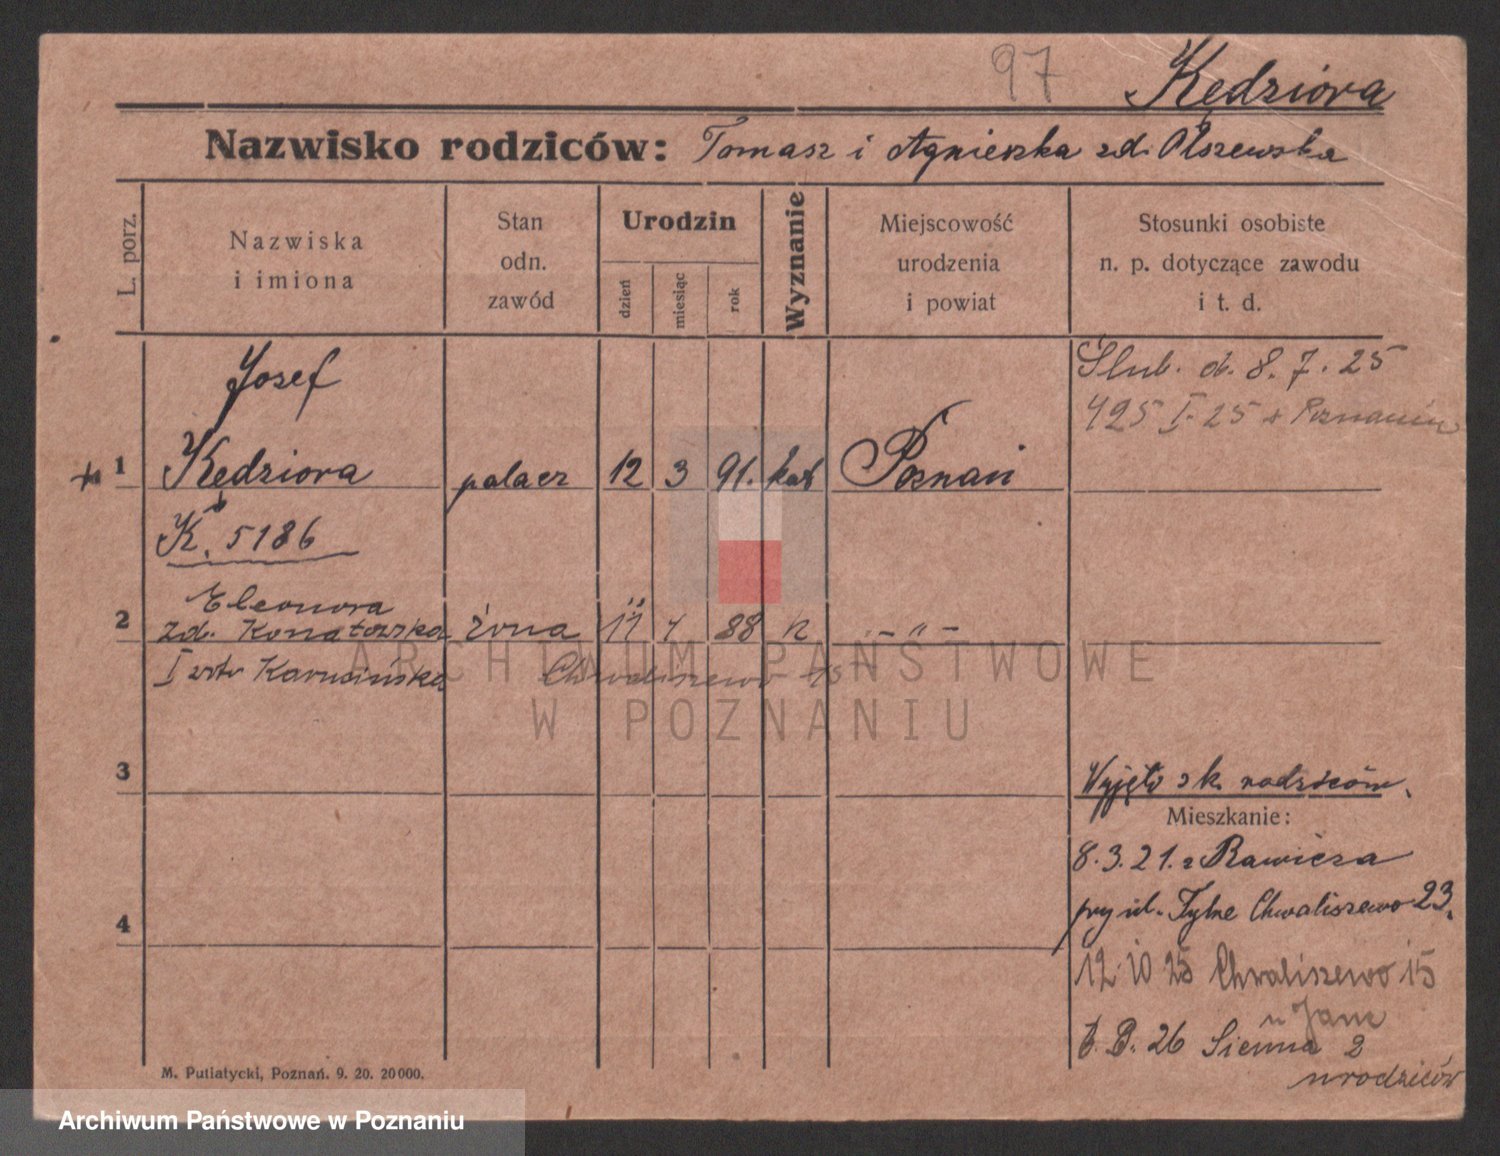 97
Kędziora
Nazwisko rodziców: Tomasz i Agnieszka zd. Olszewska
L. porz.
Nazwiska
i imiona
Stan
odn.
zawód
Urodzin
dzień
miesiąc
rok
Wyznanie
Miejscowość
urodzenia
i powiat
Stosunki osobiste
n. p. dotyczące zawodu
i t. d.
Josef
Ślub. d. 8. 7. 25
425 I. 25 Poznaniu
1 Kędziora palacz 12 3 91. kat Poznań
K. 5186
Eleonora
2 zd. Konatowska żona 11 88 - " -
I Karucińska Chwaliszewo
ARCHIWUM PAŃSTWOWE
W POZNANIU
3
Wyjęto z k. rodziców.
Mieszkanie:
8. 3. 21. z Rawicza
przy ul. Tylne Chwaliszewo 23.
4
12 10 25 Chwaliszewo 15
u Jane
26 Sienna 2
u rodziców
M. Putiatycki, Poznań. 9. 20. 20000.
Archiwum Państwowe w Poznaniu